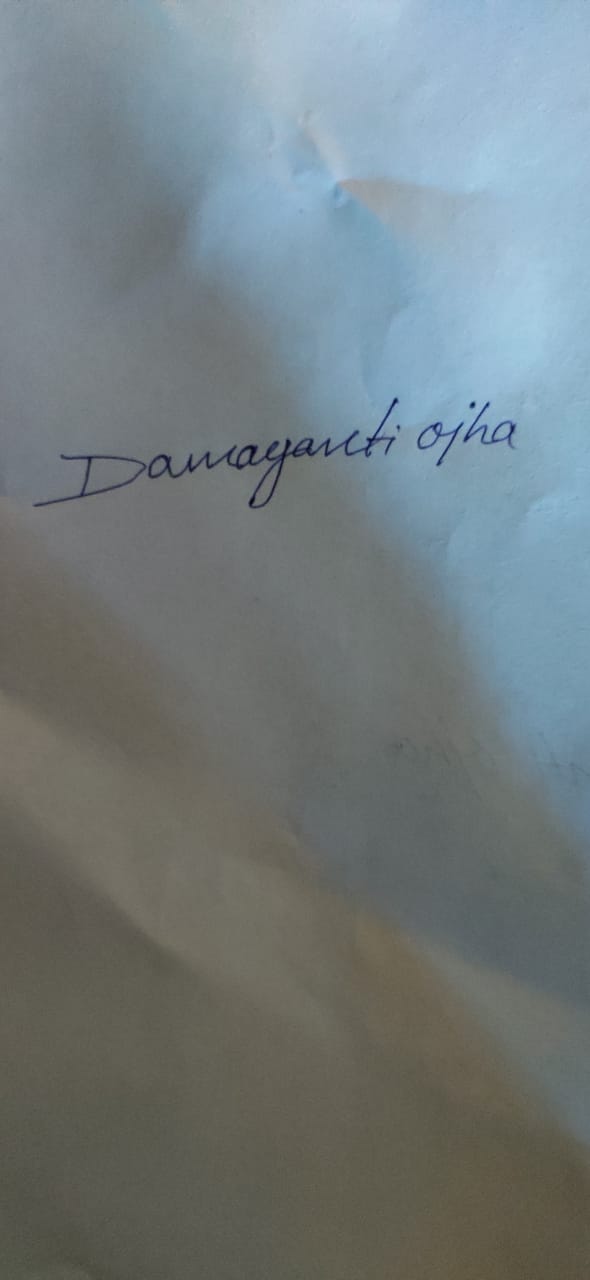 Damayanti ojha